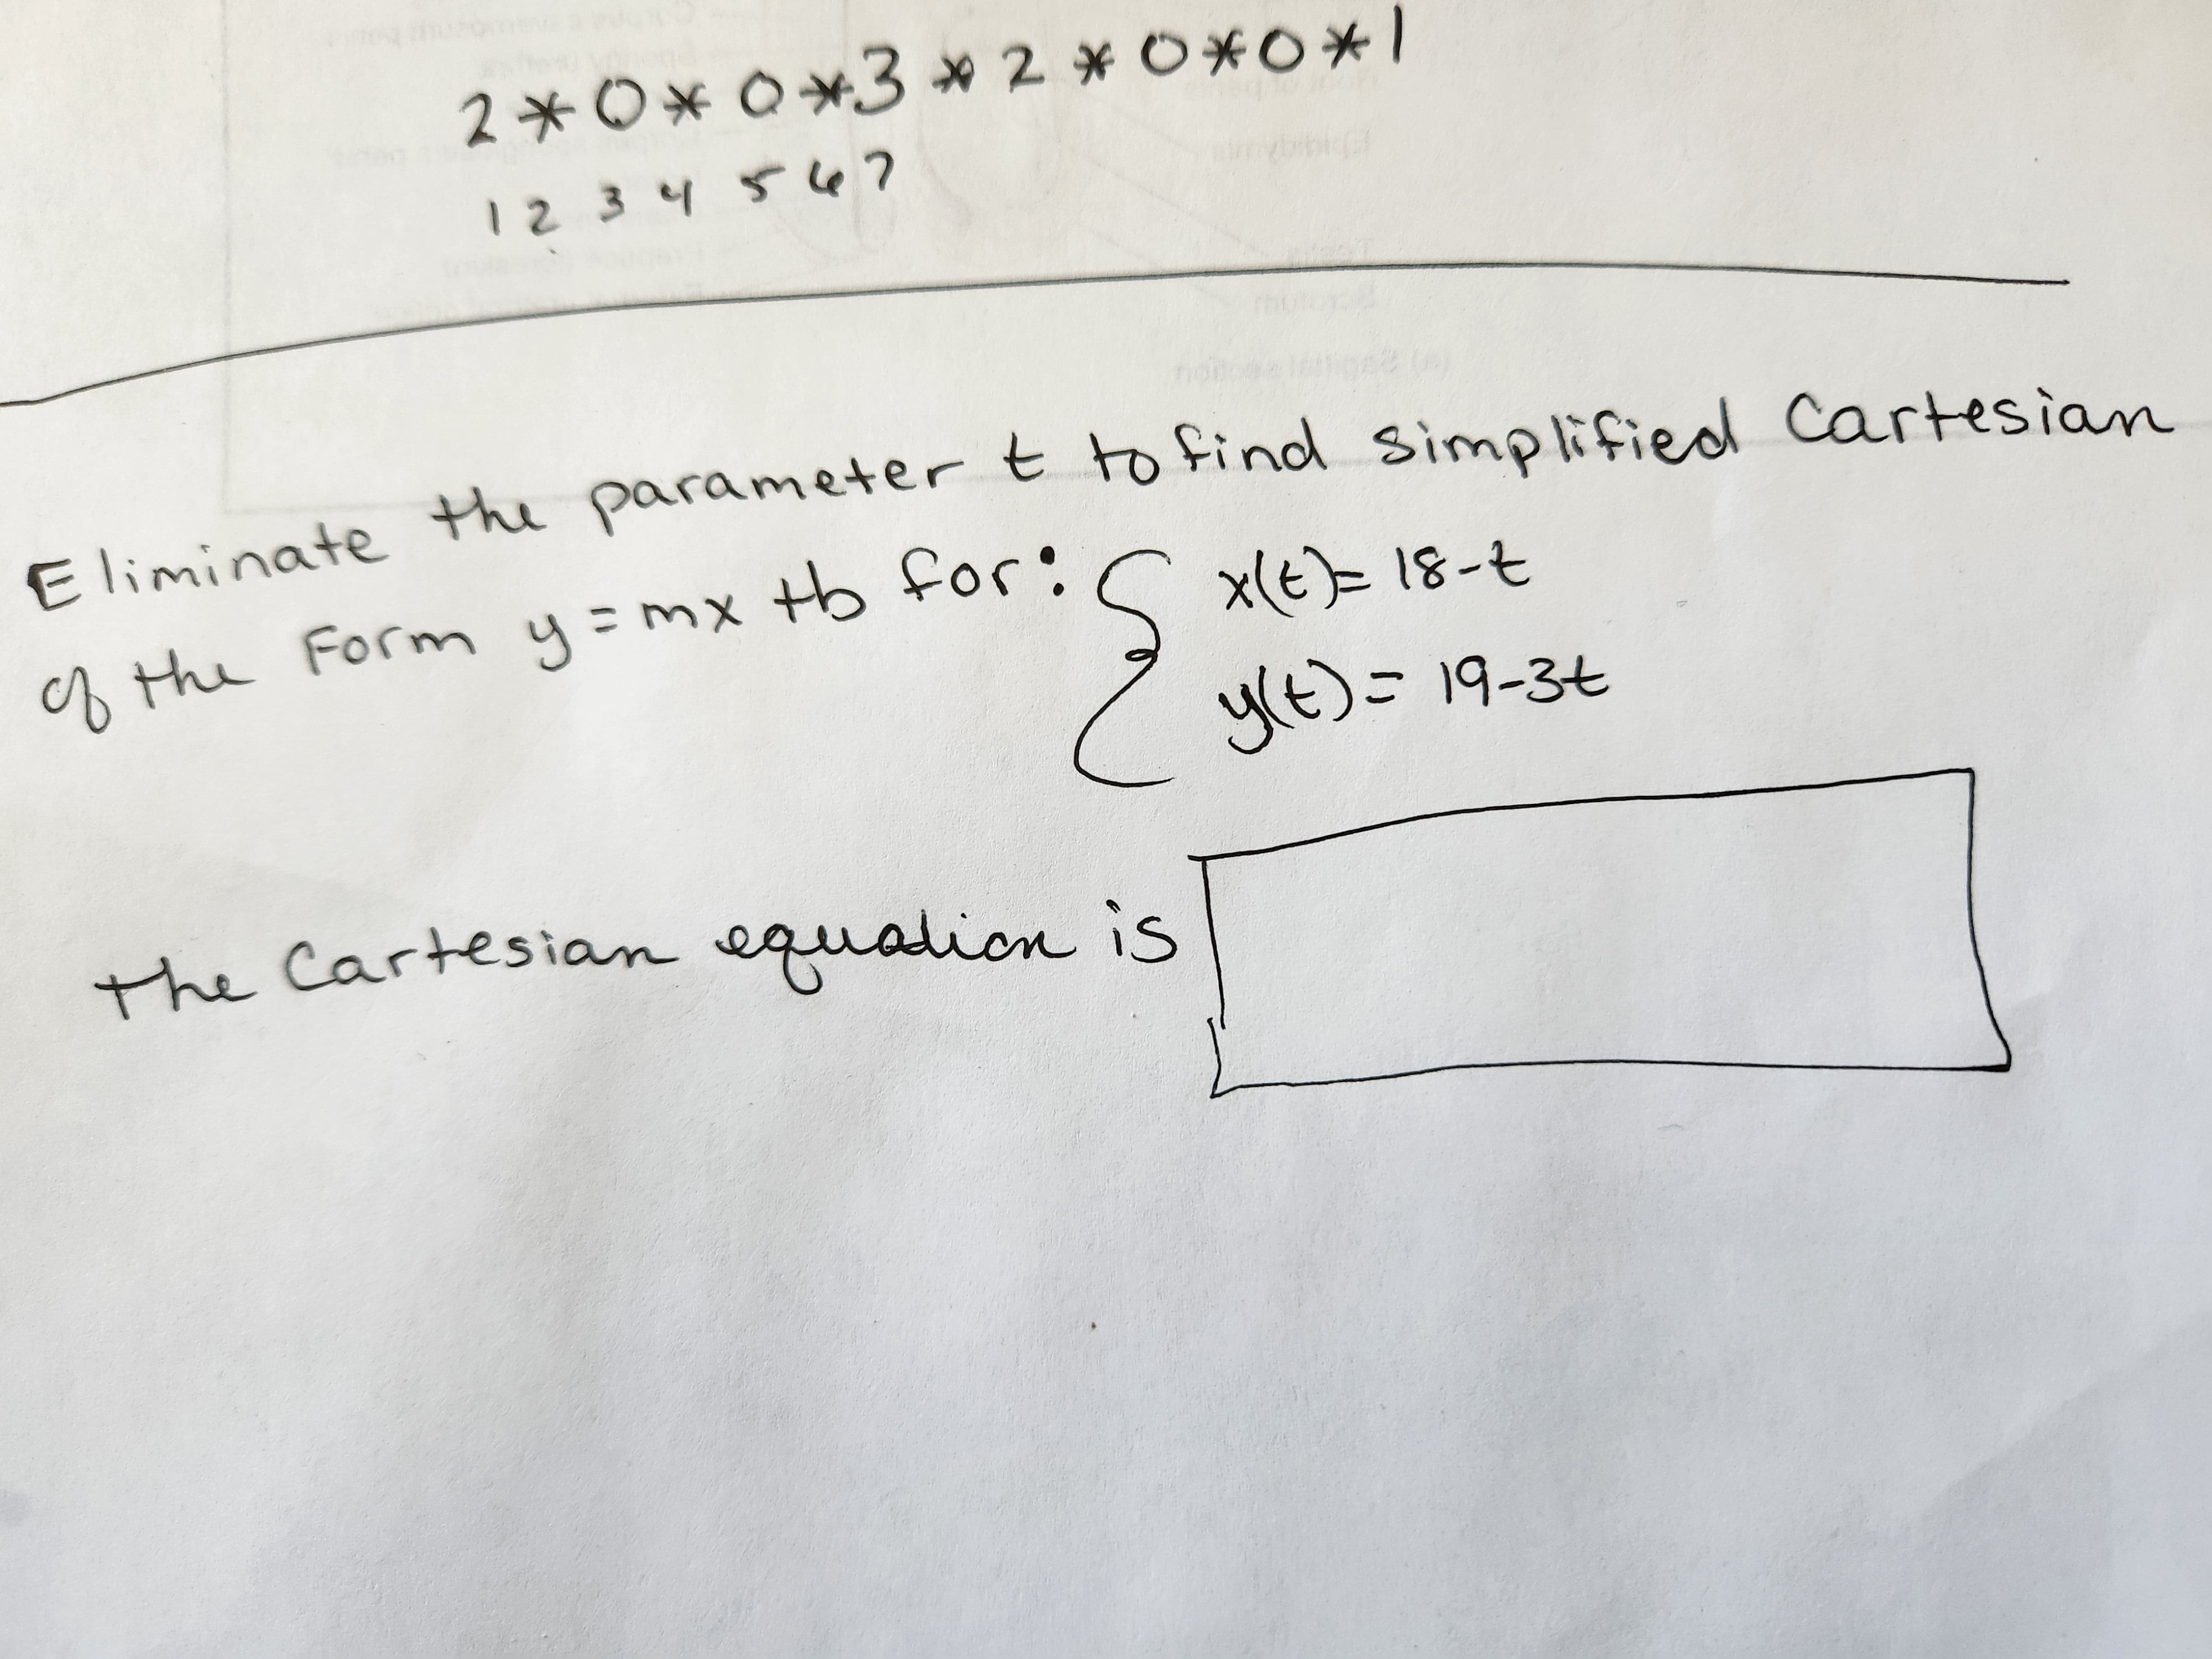 2 * 0 * 0 * 3 * 2 * 0 * 0 * 1
1 2 3 4 5 6 7
Eliminate the parameter t to find simplified Cartesian
of the Form y = mx + b for: { x(t) = 18 - t
y(t) = 19 - 3t
the Cartesian equation is
Epididymis
Testis
Scrotum
(a) Sagittal section